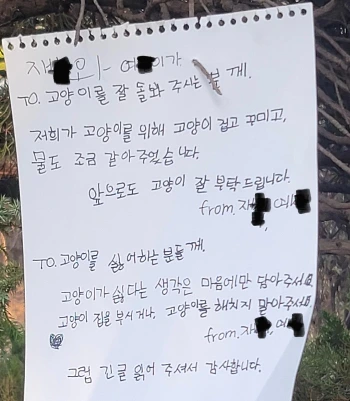 재 와 예 이가
TO. 고양이를 잘 돌봐 주시는 분께.
저희가 고양이를 위해 고양이 겁고 꾸미고,
물도 조금 갈아주었습니다.
앞으로도 고양이 잘 부탁드립니다.
from. 재 예
TO. 고양이를 싫어하는 분들께.
고양이가 싫다는 생각은 마음에만 담아주세요
고양이 집을 부시거나, 고양이를 해치지 말아주세요
from. 재 예
그럼 긴글 읽어 주셔서 감사합니다.